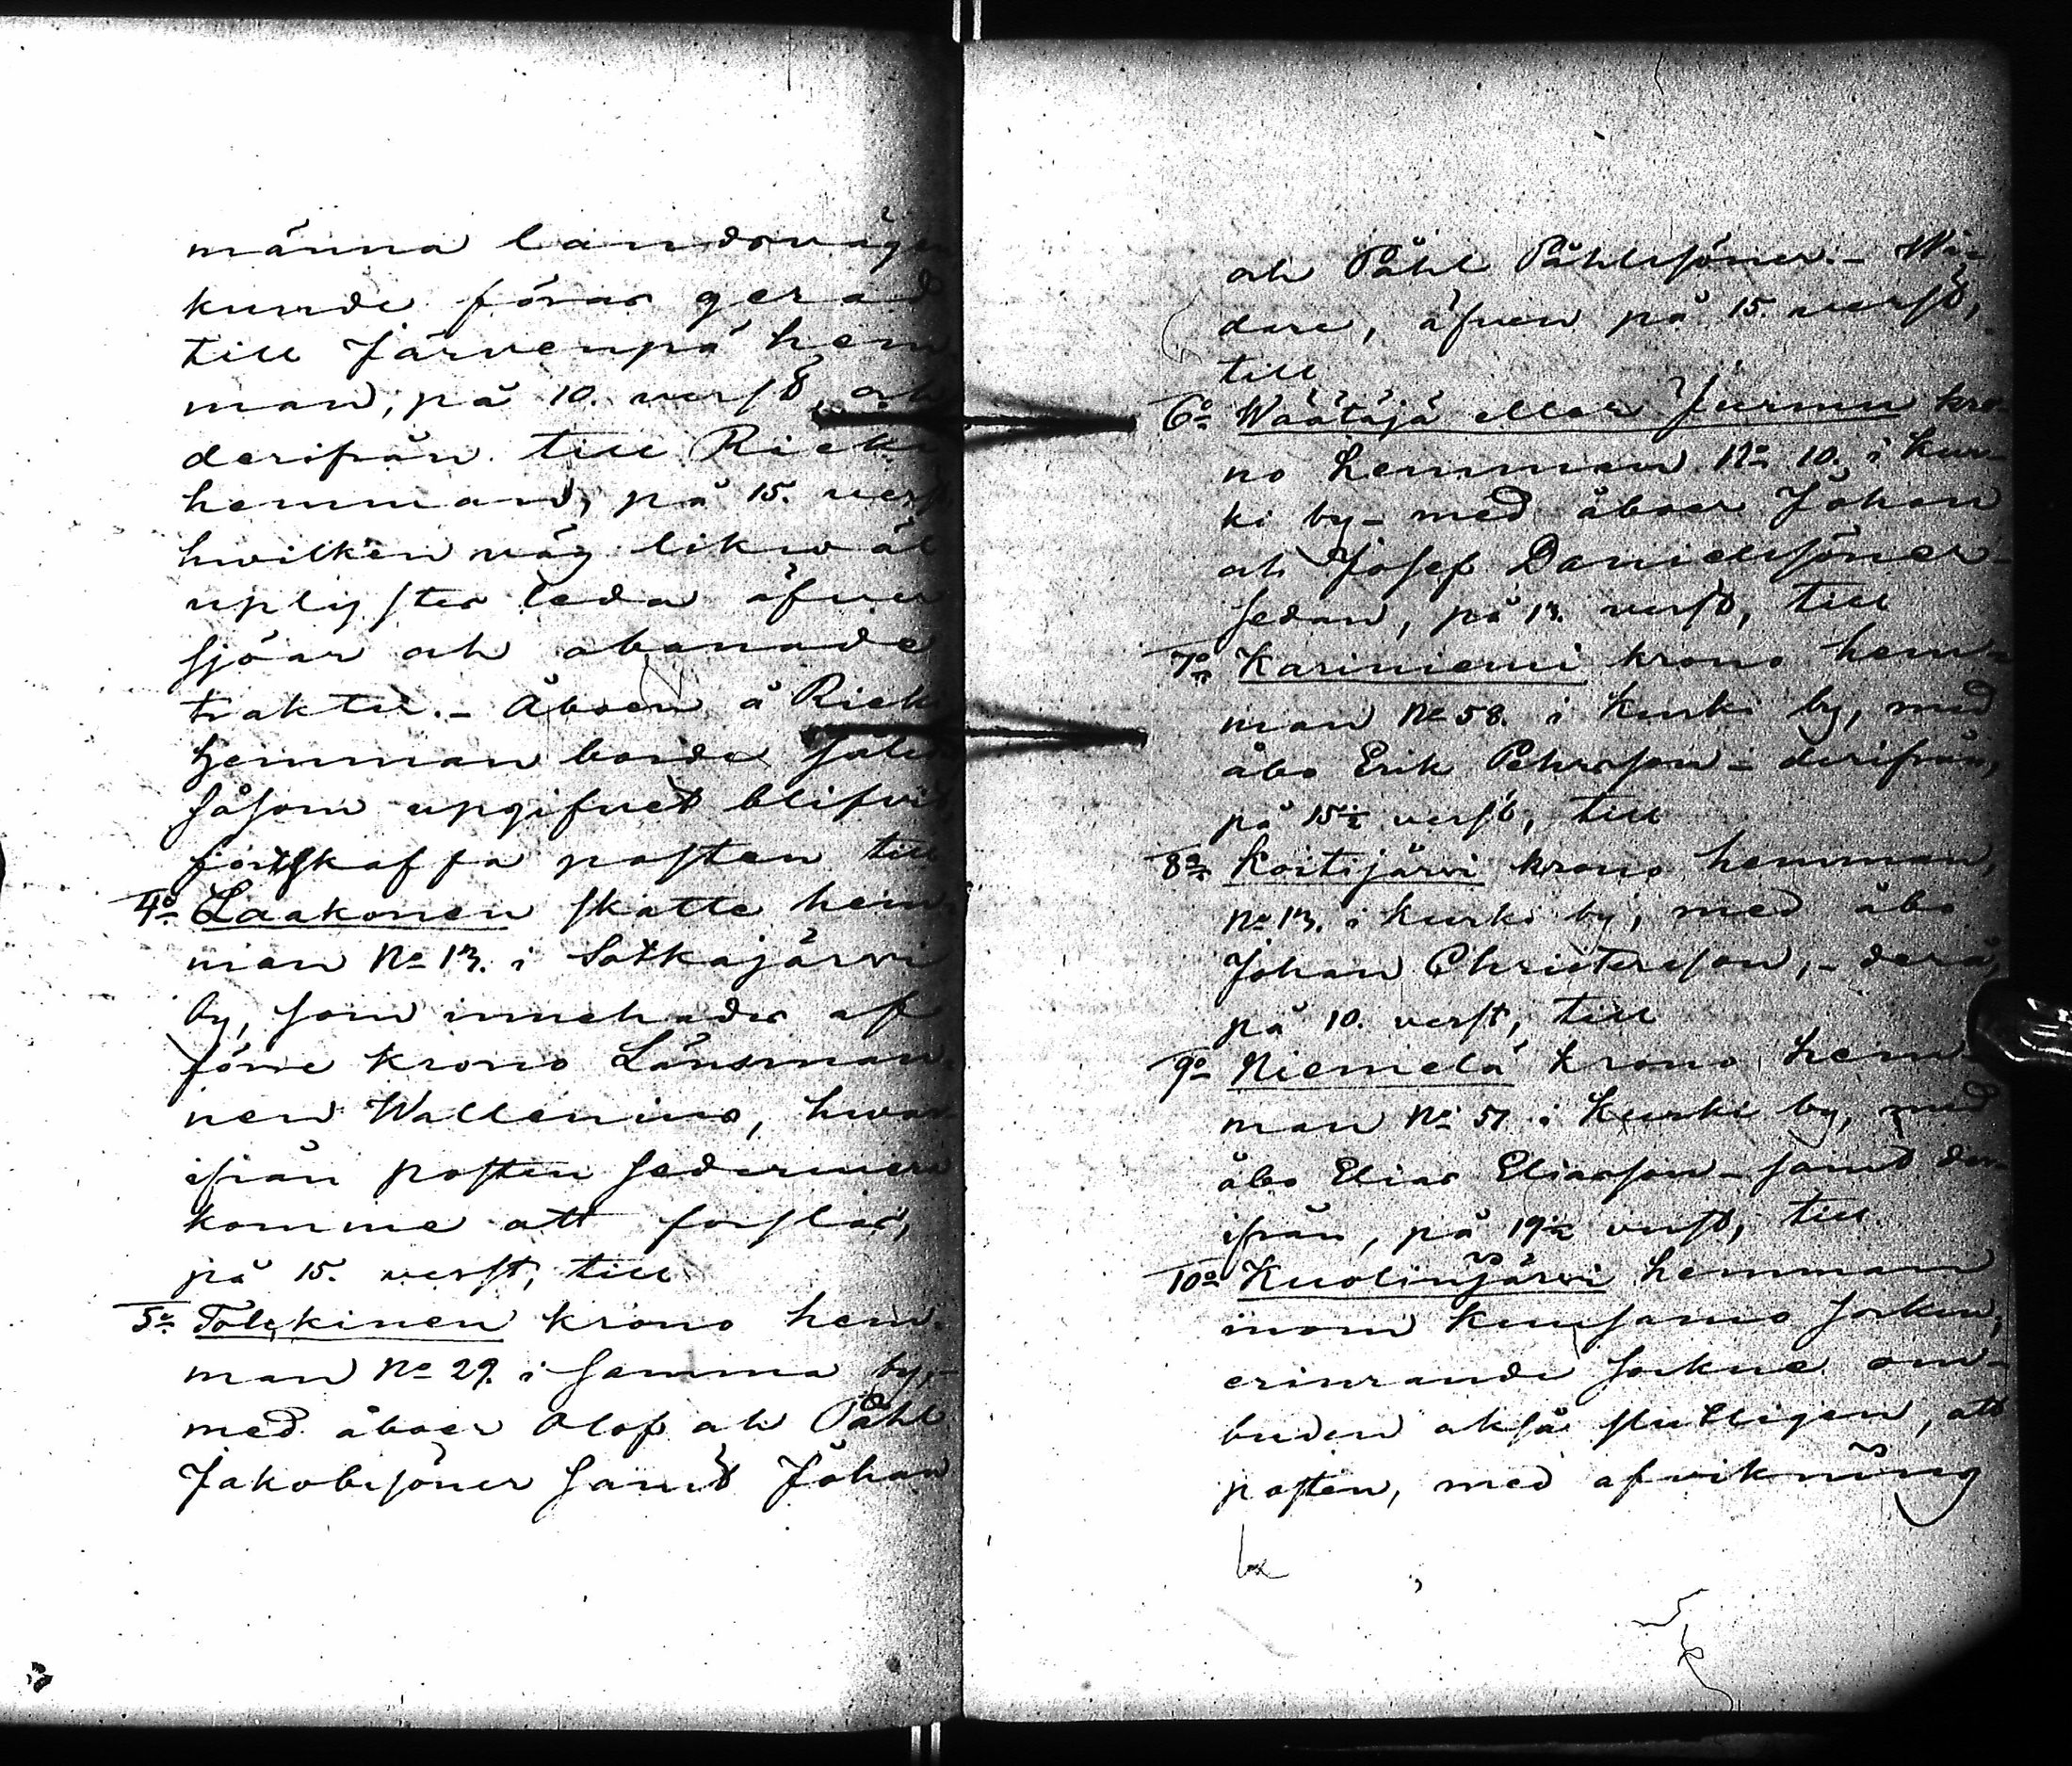 männa landsvägen
kunde föras gerad
till Järvenpä hem
man, på 10. verst, och
derifrån till Riekki
hemman, på 15. verst
hvilken väg likväl
uplystes leda äfver
sjöar och obanade
trakter. – Åboen å Riek
hemman borde
såsom upgifvet blifvit
fortskaffa posten till
4o Laakonen skatte hem-
man No 13. i Satkajärvi
by, som innehades af
förre krono Länsman-
nen Wallenius, hvar
ifrån posten sedermera
komme att forslas,
på 15. verst, till
5o Tolckinen krono hem-
man No 29. i samma by, –
med åboer Olof och Påhl
Jakobssöner samt Johan
och Påhl Påhlssöner. – Vi-
dare, äfven på 15. verst,
till
6o Wäätäjä eller Jurmu kro-
no hemman No 10. i Kur-
ki by – med åboer Johan
och Josef Danielssöner –
sedan, på 13. verst, till
7o Kariniemi krono hem-
man No 58. i Kurki by, med
åbo Erik Pehrsson – derifrån,
på 15½ verst, till
8o Koitijärvi krono hemman,
No 13. i Kurki by, med åbo
Johan Christersson, – derå,
på 10. verst, till
9o Niemelä krono hem-
man No 57 i Kurki by, med
åbo Elias Eliasson – samt der-
ifrån, på 19½ verst, till
10o Kuolinjärvi hemman
inom Kuusamo socken,
erinrande sockne om-
buden också slutligen, att
posten, med afvikning